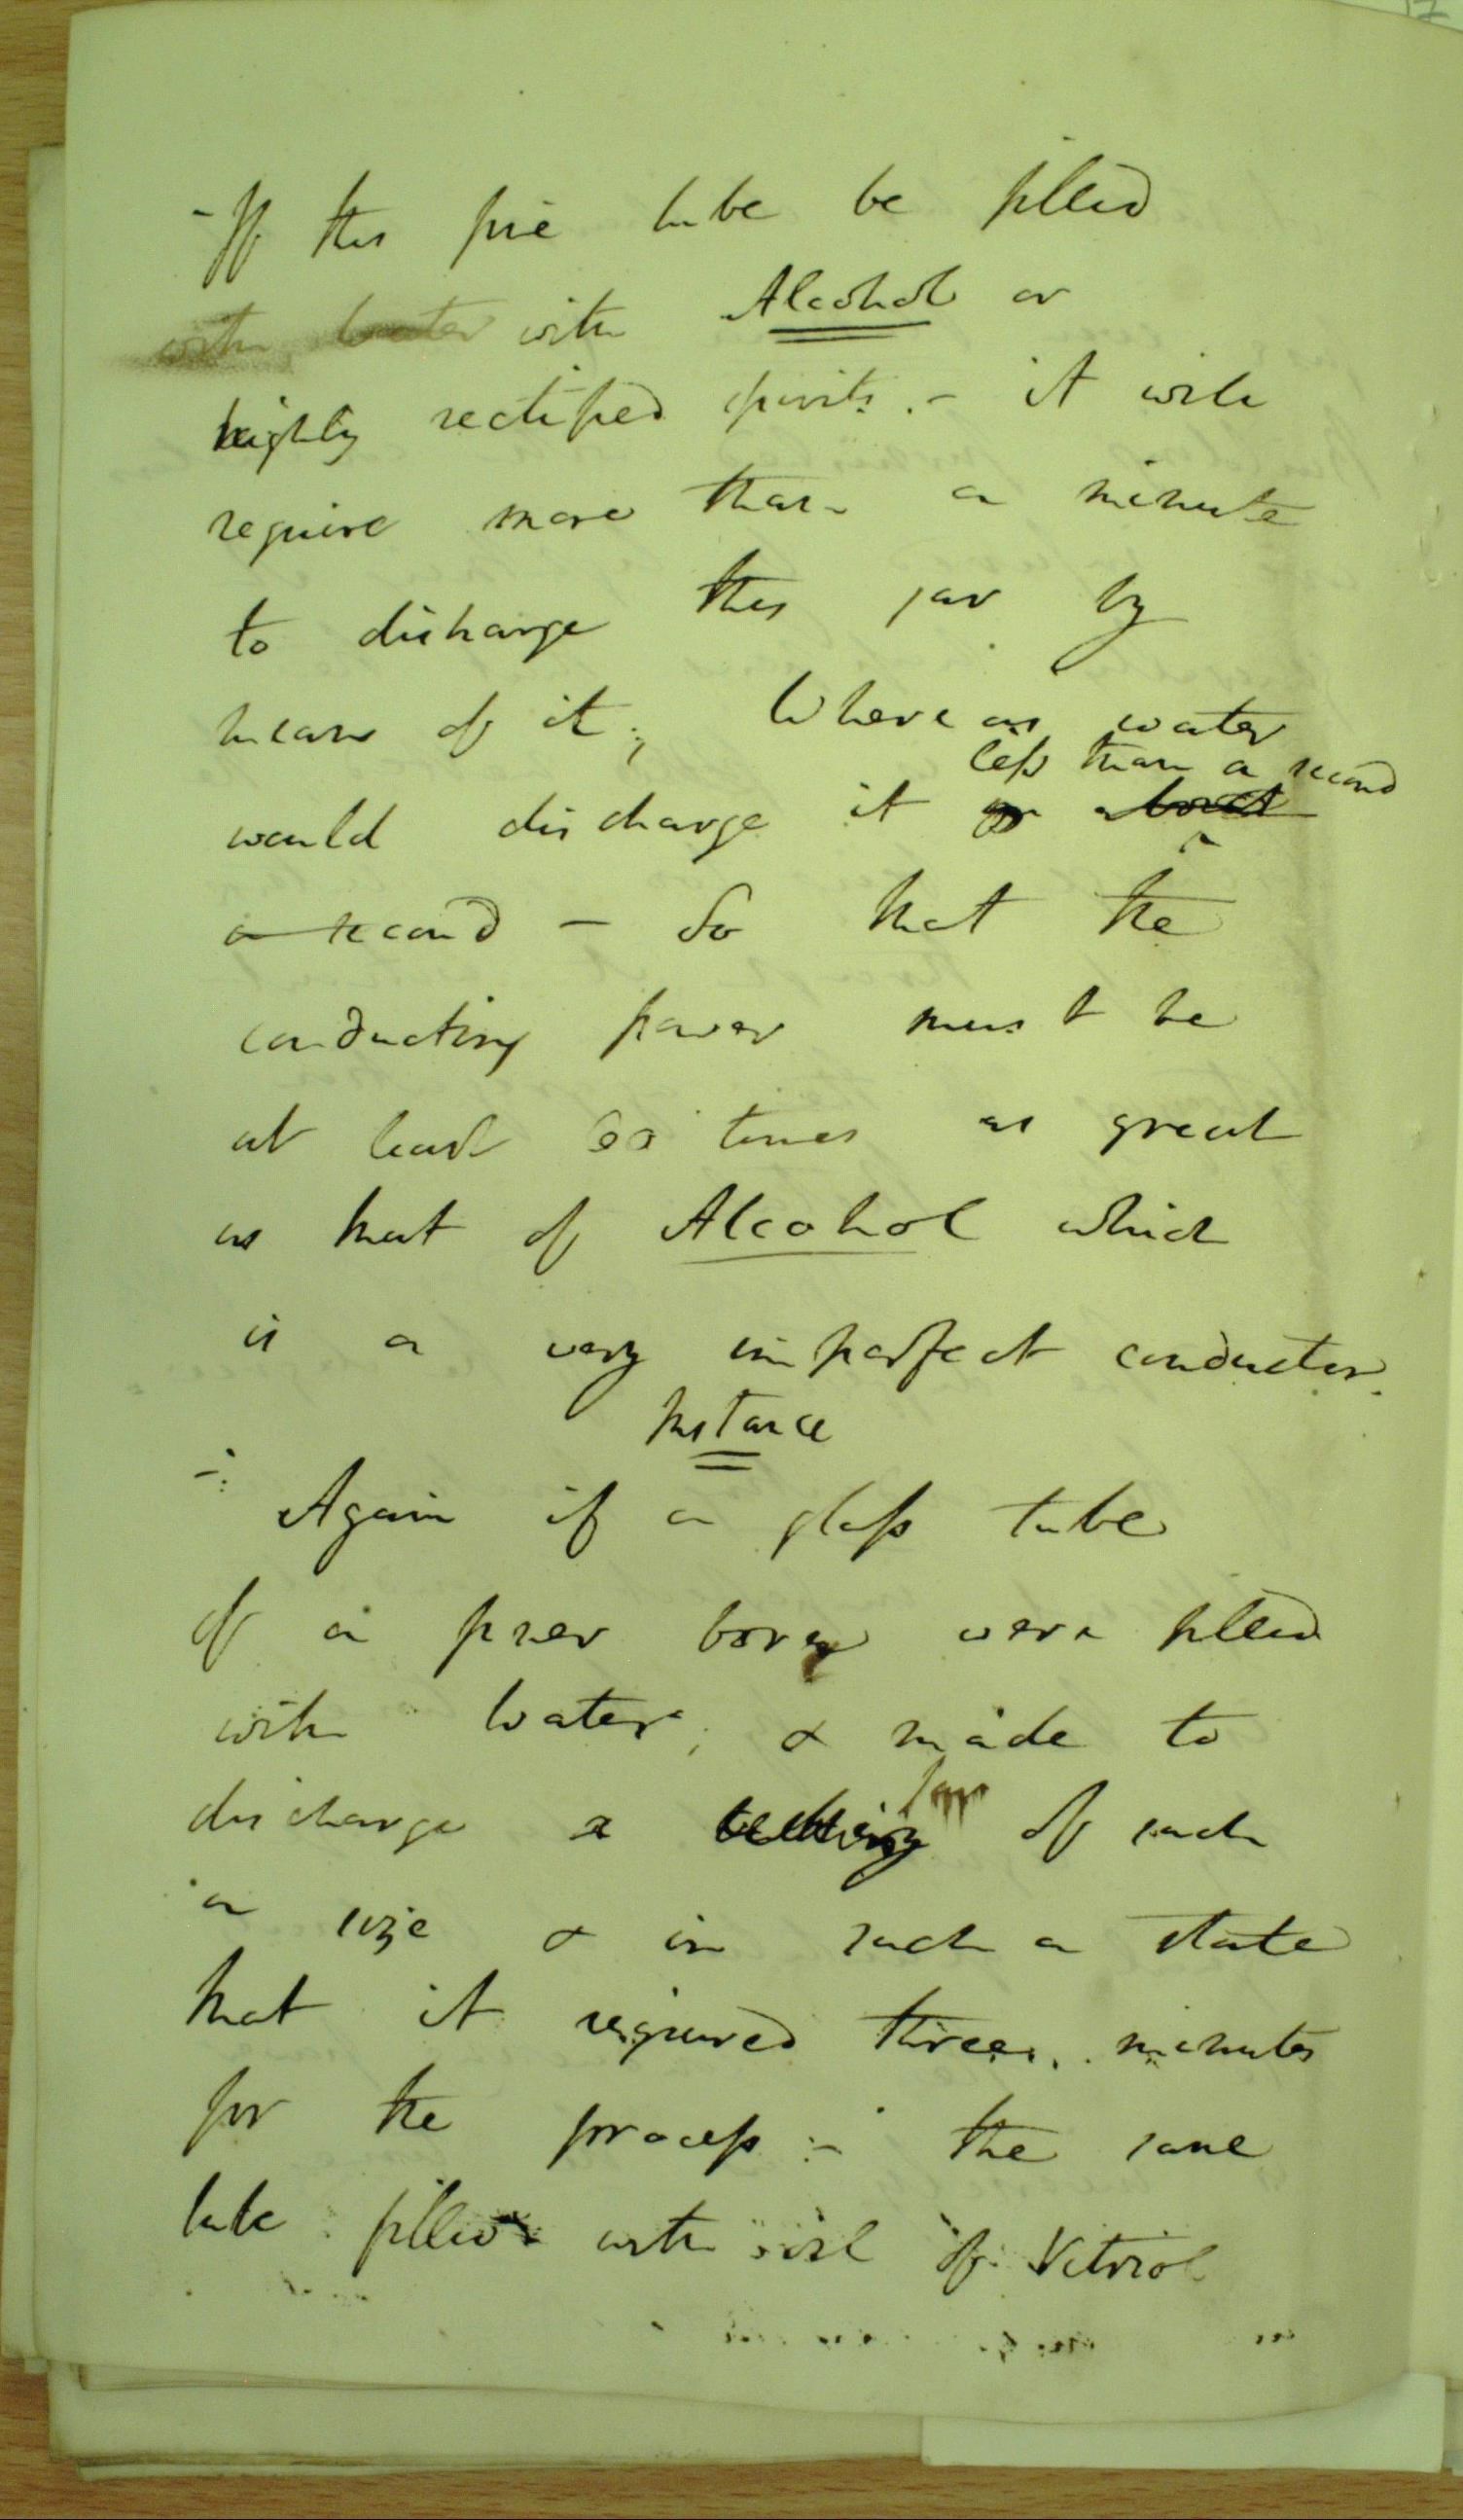 - If this fine tube be filled
with water with Alcohol or
highly rectified spirits. - it will
require more than a minute
to discharge this jar by
means of it; Whereas water
less than a second
would discharge it in about
a second - So that the
conducting power must be
at least 60 times as great
as that of Alcohol which
is a very imperfect conductor.
Instance
-: Again if a glass tube
of a finer bore were filled
with Water, & made to
jar
discharge a battery of such
a size & in such a state
that it required three minutes
for the process :- the same
tube filled with oil of Vitriol